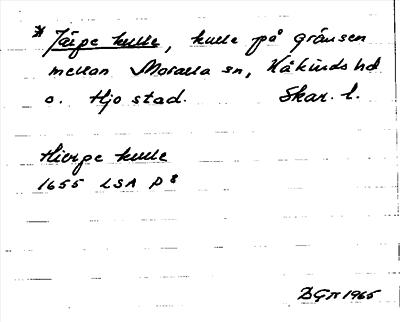 * Järpe kulle, kulle på gränsen
mellan Mofalla sn, Kåkinds hd
o. Hjo stad. Skar. l.
Hierpe kulle
1655 LSA P 8
DGn 1965